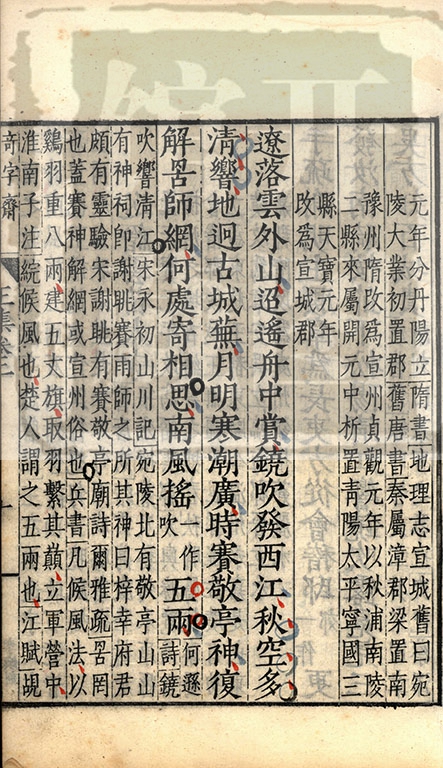 元年分丹陽立隋書地理志宣城舊曰宛
陵大業初置郡舊唐書秦屬漳郡梁置南
豫州隋改為宣州貞觀元年以秋浦南陵
二縣來屬開元中析置青陽太平寧國三
縣天寶元年
改為宣城郡
遼落雲外山迢遙舟中賞鐃吹發西江秋空多
清響地迥古城蕪月明寒潮廣時賽敬亭神復
解罟師網何處寄相思南風搖一作吹五兩何遜詩鐃
吹響清江宋永初山川記宛陵北有敬亭山山
有神祠即謝朓賽雨師之所其神曰梓幸府君
頗有靈驗宋謝朓有賽敬亭廟詩爾雅疏罟罔
也蓋賽神解網或宣州俗也兵書凡候風法以
鷄羽重八兩建五丈旗取羽繫其巔立軍營中
淮南子注綄候風也楚人謂之五兩也江賦覘
奇字齋